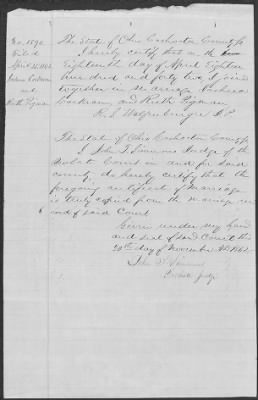 No. 1590
Filed
April 21, 1842
Cochran
and
Ruth Pigman
The State of Ohio Coshocton County, ss
I hereby certify that on the
Eighteenth day of April Eighteen
hundred and forty two, I joined
together in marriage
Cochran, and Ruth Pigman
J.P.
The State of Ohio Coshocton County, ss
I John T. Simmons Judge of the
Probate Court in and for said
county do hereby certify that the
foregoing certificate of marriage
is truly copied from the marriage rec
ord of said Court
Given under my hand
and seal of said Court this
20th day of November AD 1862
John T. Simmons
Probate Judge